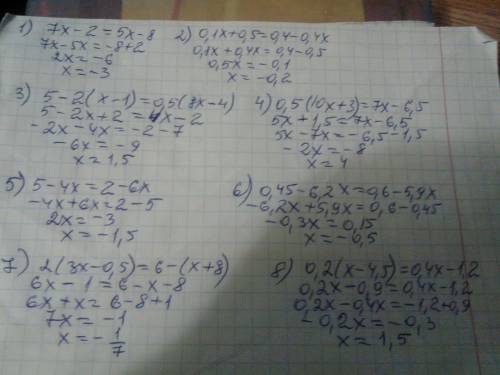 1) 7x-2=5x-8
7x-5x=-8+2
2x=-6
x=-3
2) 0,1x+0,5=0,4-0,4x
0,1x+0,4x=0,4-0,5
0,5x=-0,1
x=-0,2
3) 5-2(x-1)=0,5(8x-4)
5-2x+2=4x-2
-2x-4x=-2-7
-6x=-9
x=1,5
4) 0,5(10x+3)=7x-6,5
5x+1,5=7x-6,5
5x-7x=-6,5-1,5
-2x=-8
x=4
5) 5-4x=2-6x
-4x+6x=2-5
2x=-3
x=-1,5
6) 0,45-6,2x=0,6-5,9x
-6,2x+5,9x=0,6-0,45
-0,3x=0,15
x=-0,5
7) 2(3x-0,5)=6-(x+8)
6x-1=6-x-8
6x+x=6-8+1
7x=-1
x=-1/7
8) 0,2(x-4,5)=0,4x-1,2
0,2x-0,9=0,4x-1,2
0,2x-0,4x=-1,2+0,9
-0,2x=-0,3
x=1,5